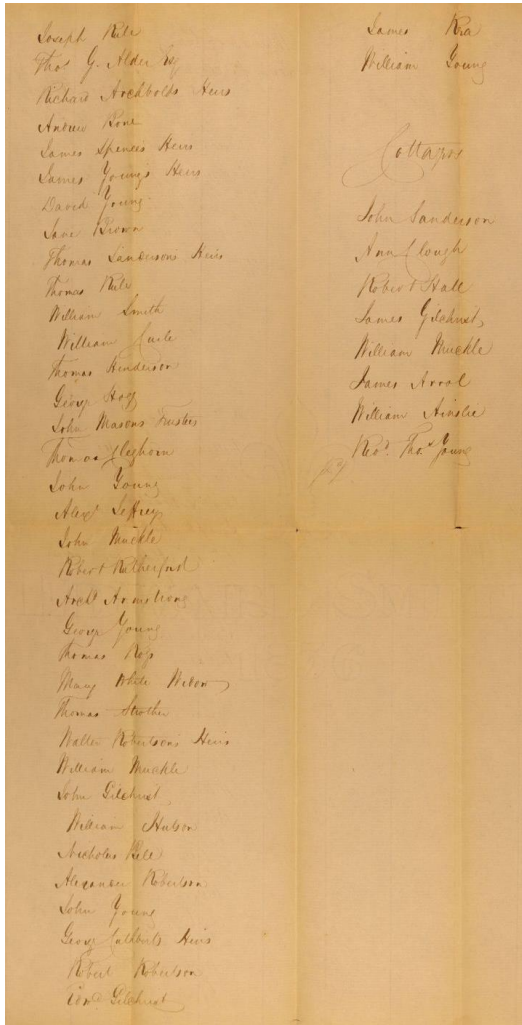 Joseph Rule
Thos G. Alder Esq
Richard Archbolds Heirs
Andrew Bone
James Spences Heirs
James Youngs Heirs
David Young
Jane Brown
Thomas Sandersons Heirs
Thomas Rule
William Smith
William Curle
Thomas Henderson
George Hog
John Masons Trustees
Thomas Cleghorn
John Young
Alexr Jeffrey
John Muckle
Robert Rutherford
Archd Armstrong
George Young
Thomas Ross
Mary White Widow
Thomas Strother
Walter Robertson's Heirs
William Muckle
John Gilchrist
William Hutson
Nicholas Bell
Alexander Robertson
John Young
George Cuthberts Heirs
Robert Robertson
Edwd Gilchrist
James
William Young
Cottagers
John Sanderson
Ann Clough
Robert Hall
James Gilchrist
William Muckle
James Arrol
William Ainslie
Revd. Thos. Young